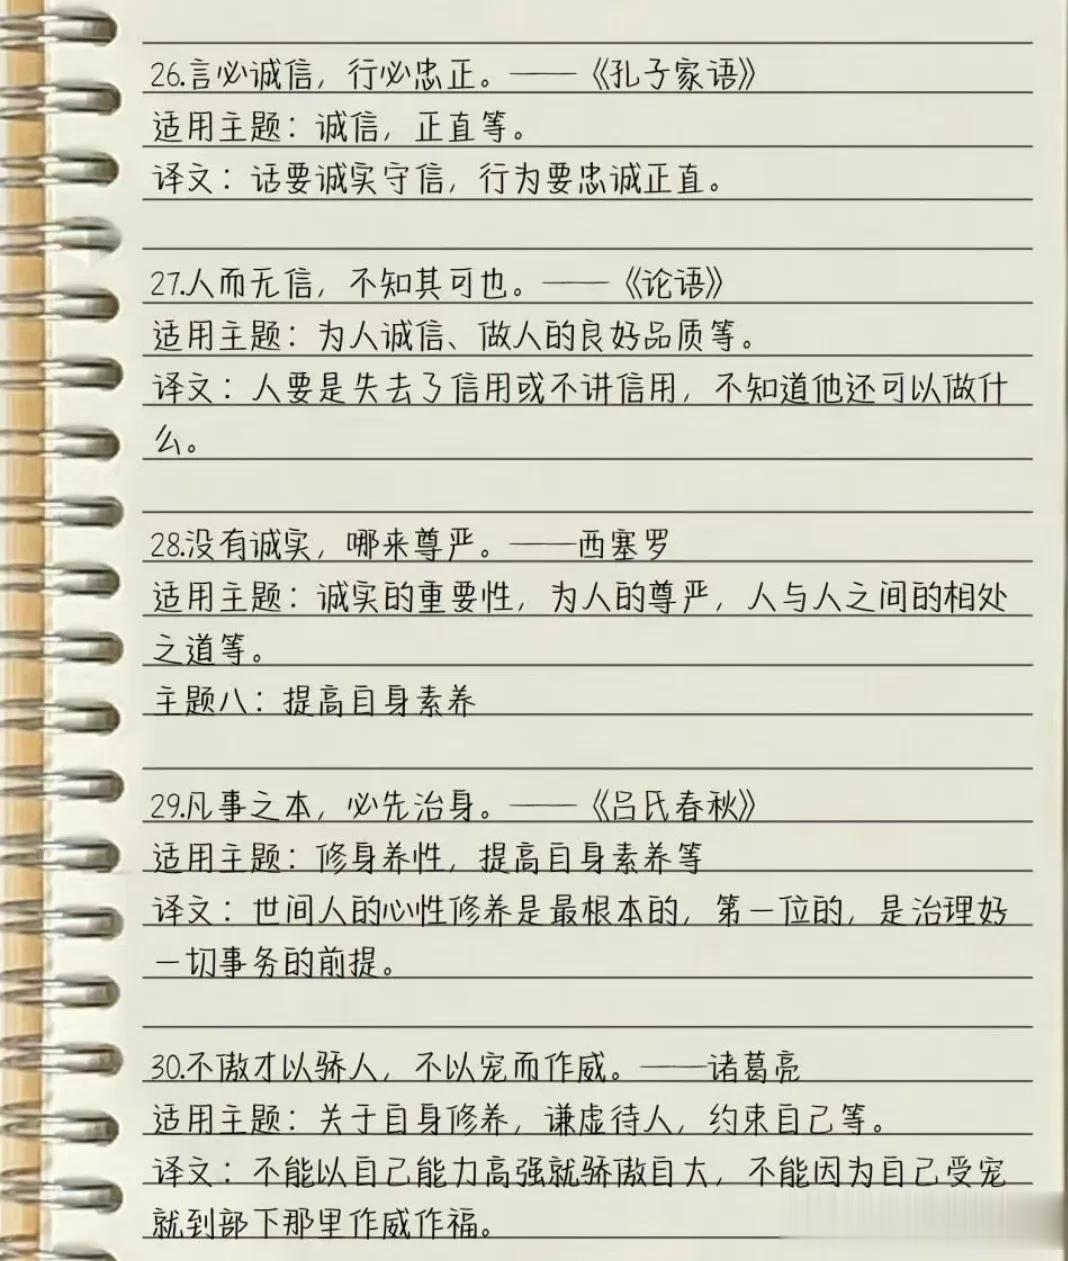 26.言必诚信，行必忠正。——《孔子家语》
适用主题：诚信，正直等。
译文：话要诚实守信，行为要忠诚正直。
27.人而无信，不知其可也。——《论语》
适用主题：为人诚信、做人的良好品质等。
译文：人要是失去了信用或不讲信用，不知道他还可以做什
么。
28.没有诚实，哪来尊严。——西塞罗
适用主题：诚实的重要性，为人的尊严，人与人之间的相处
之道等。
主题八：提高自身素养
29.凡事之本，必先治身。——《吕氏春秋》
适用主题：修身养性，提高自身素养等
译文：世间人的心性修养是最根本的，第一位的，是治理好
一切事务的前提。
30.不傲才以骄人，不以宠而作威。——诸葛亮
适用主题：关于自身修养，谦虚待人，约束自己等。
译文：不能以自己能力高强就骄傲自大，不能因为自己受宠
就到部下那里作威作福。